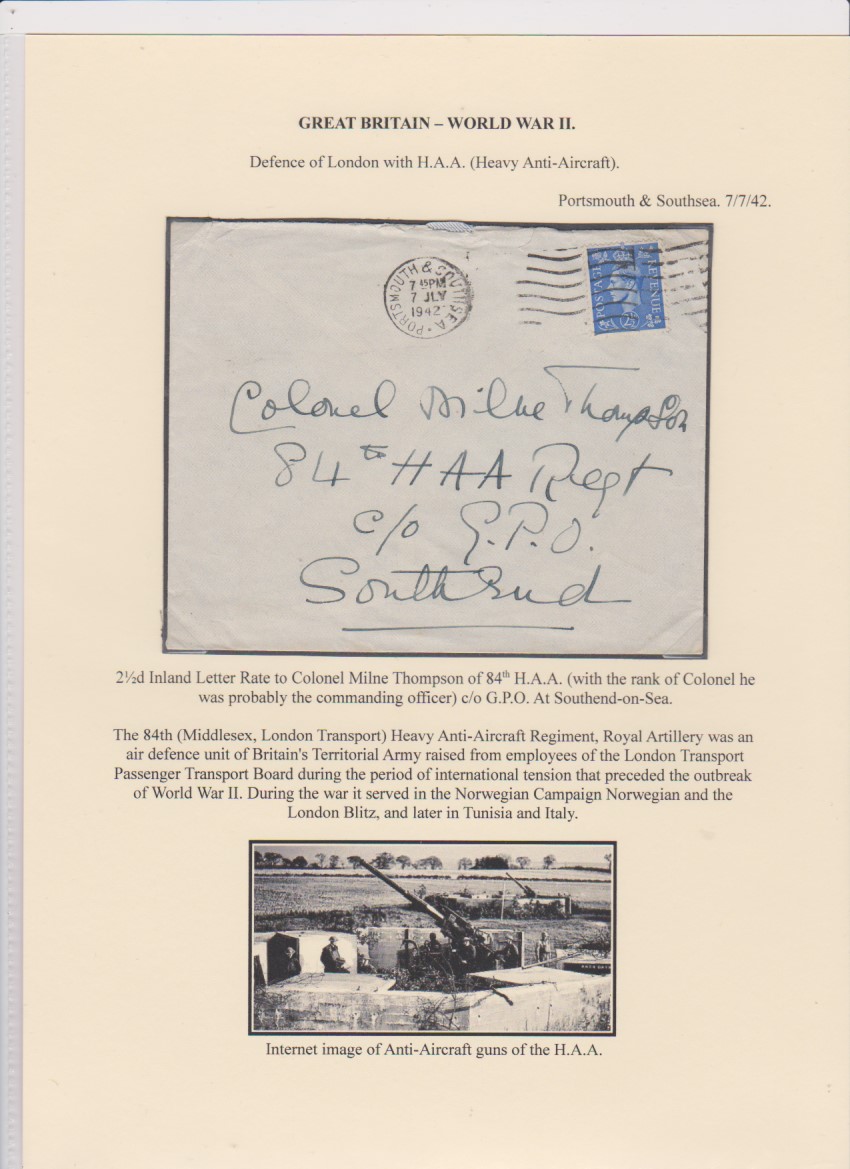 GREAT BRITAIN – WORLD WAR II.
Defence of London with H.A.A. (Heavy Anti-Aircraft).
Portsmouth & Southsea. 7/7/42.
PORTSMOUTH & SOUTHSEA
7 15PM
7 JLY
1942
POSTAGE REVENUE
2½D
Colonel Milne Thompson
84th HAA Regt
c/o G.P.O.
SouthEnd
2½d Inland Letter Rate to Colonel Milne Thompson of 84th H.A.A. (with the rank of Colonel he
was probably the commanding officer) c/o G.P.O. At Southend-on-Sea.
The 84th (Middlesex, London Transport) Heavy Anti-Aircraft Regiment, Royal Artillery was an
air defence unit of Britain's Territorial Army raised from employees of the London Transport
Passenger Transport Board during the period of international tension that preceded the outbreak
of World War II. During the war it served in the Norwegian Campaign Norwegian and the
London Blitz, and later in Tunisia and Italy.
Internet image of Anti-Aircraft guns of the H.A.A.